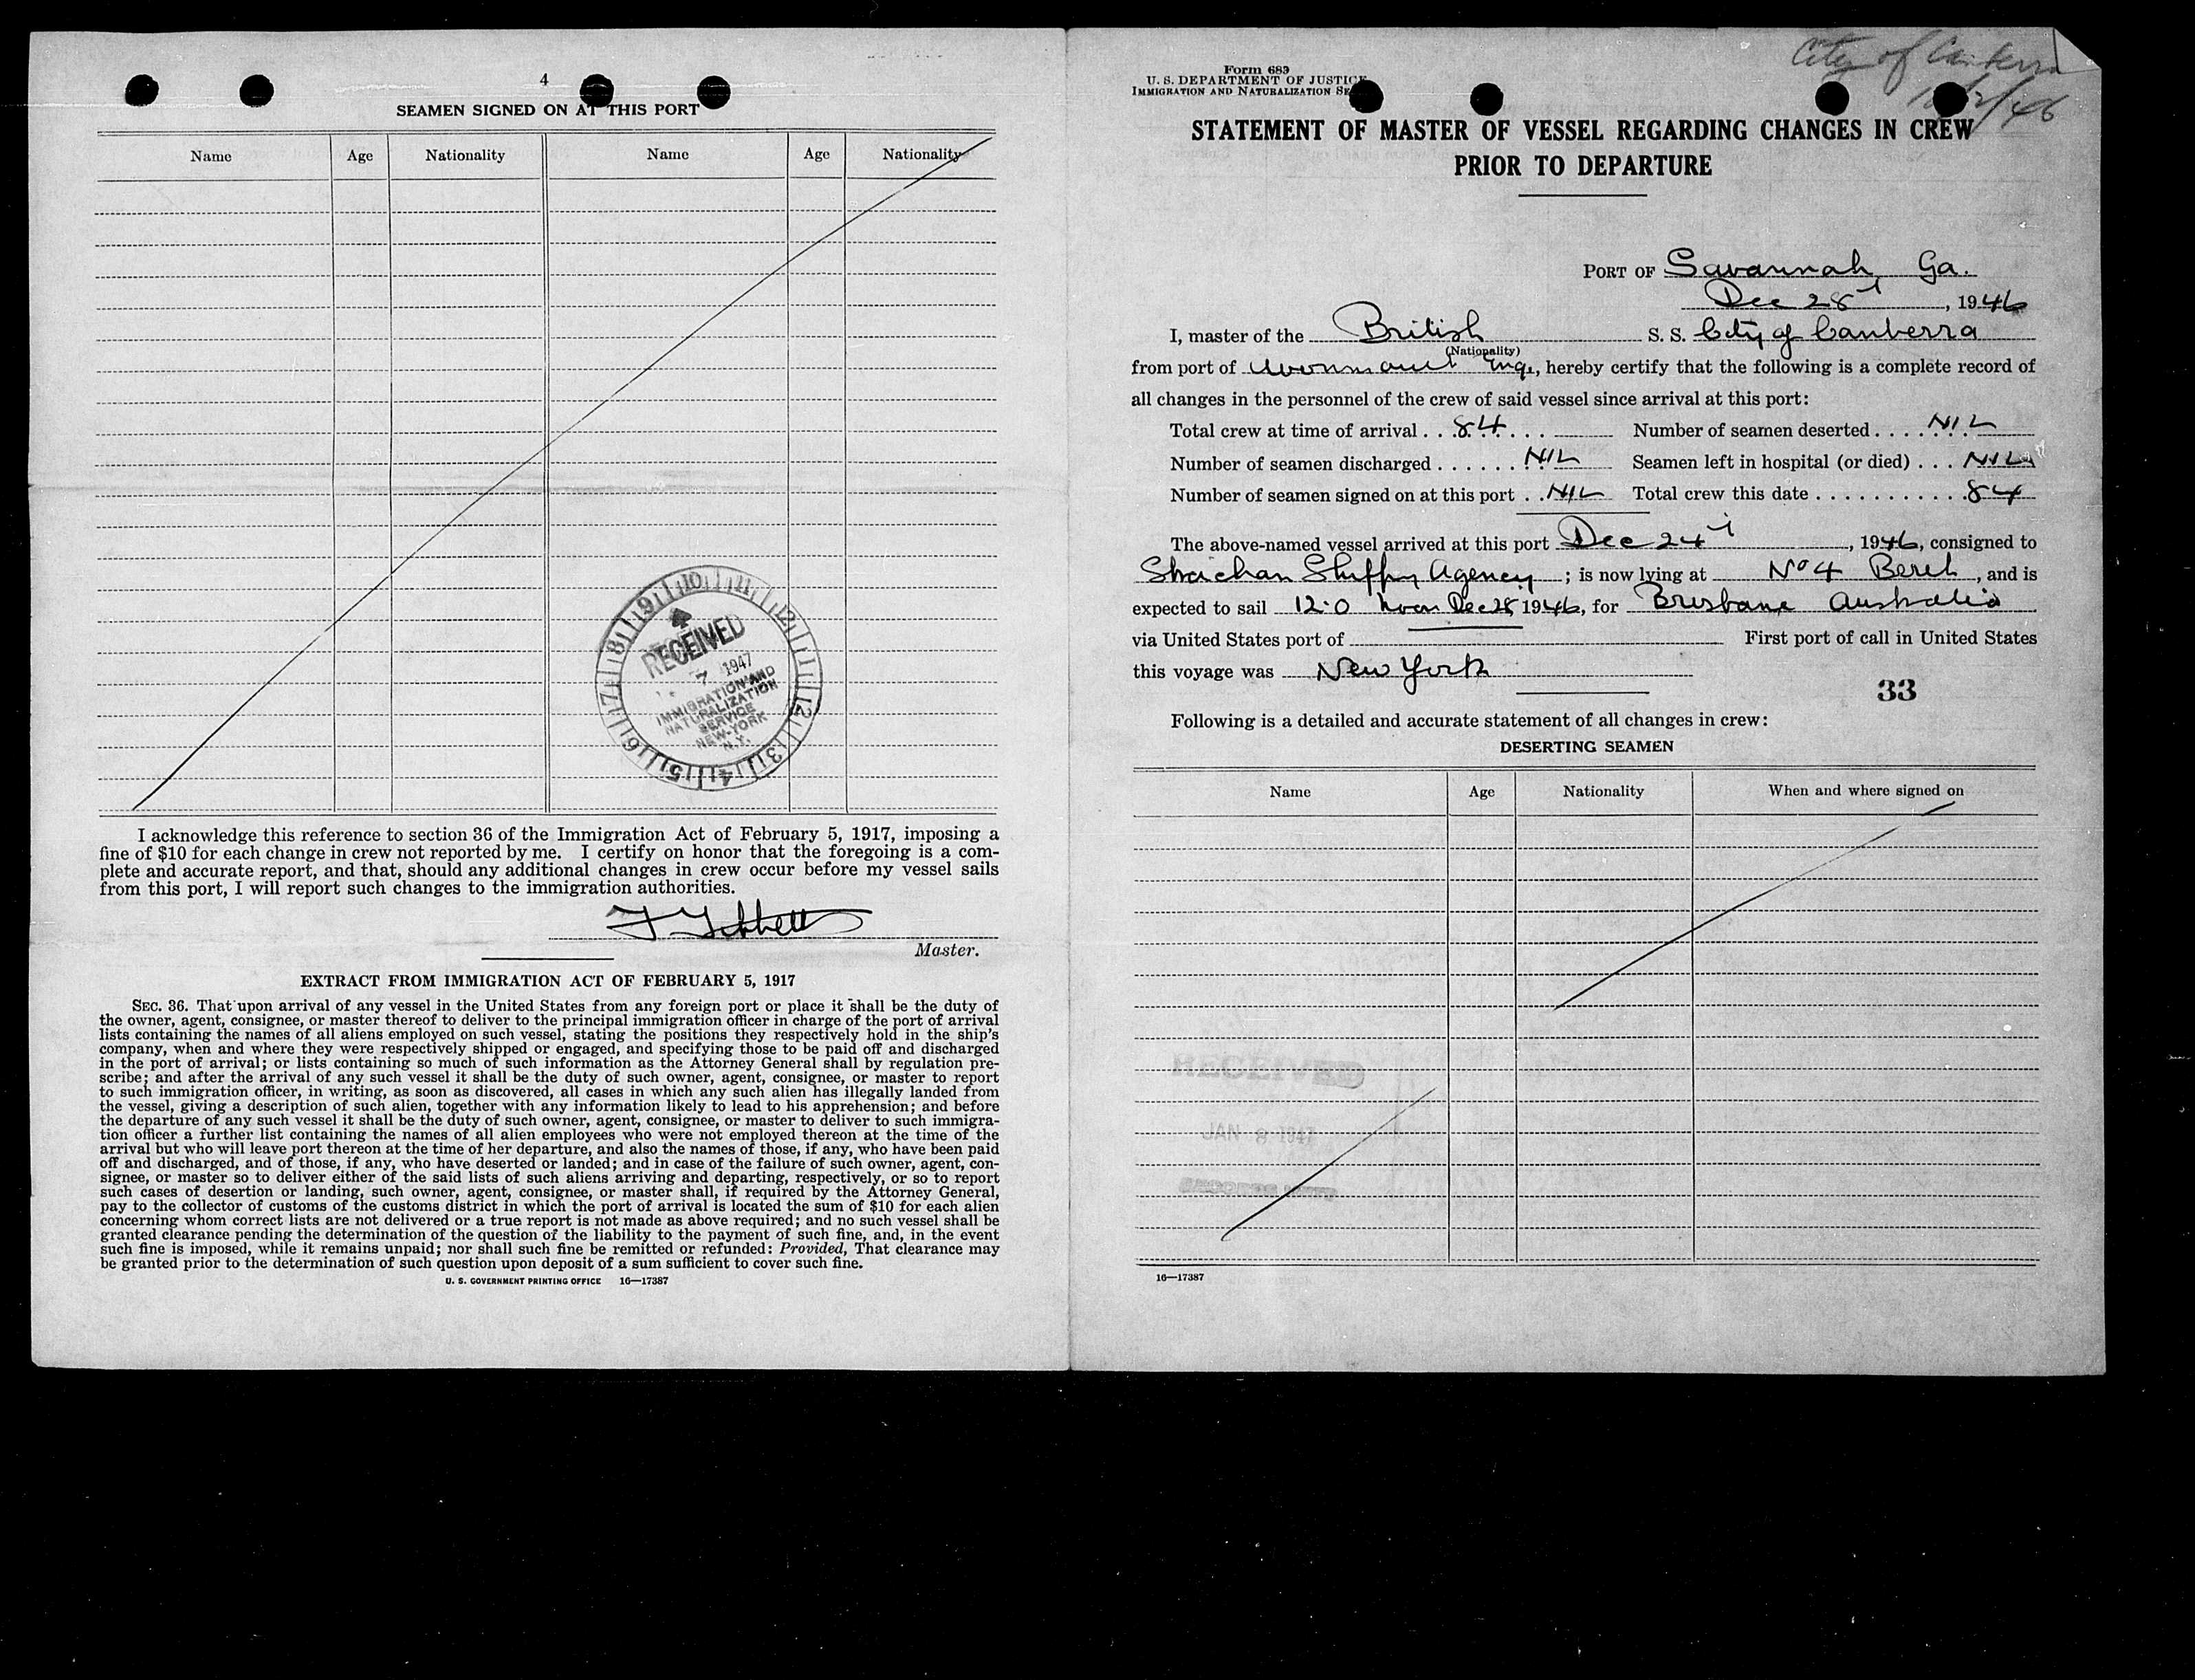 4
SEAMEN SIGNED ON AT THIS PORT
Name Age Nationality Name Age Nationality
RECEIVED
7 1947
IMMIGRATION AND
NATURALIZATION
SERVICE
NEW-YORK
N.Y.
I acknowledge this reference to section 36 of the Immigration Act of February 5, 1917, imposing a
fine of $10 for each change in crew not reported by me. I certify on honor that the foregoing is a com-
plete and accurate report, and that, should any additional changes in crew occur before my vessel sails
from this port, I will report such changes to the immigration authorities.
Master.
EXTRACT FROM IMMIGRATION ACT OF FEBRUARY 5, 1917
SEC. 36. That upon arrival of any vessel in the United States from any foreign port or place it shall be the duty of
the owner, agent, consignee, or master thereof to deliver to the principal immigration officer in charge of the port of arrival
lists containing the names of all aliens employed on such vessel, stating the positions they respectively hold in the ship's
company, when and where they were respectively shipped or engaged, and specifying those to be paid off and discharged
in the port of arrival; or lists containing so much of such information as the Attorney General shall by regulation pre-
scribe; and after the arrival of any such vessel it shall be the duty of such owner, agent, consignee, or master to report
to such immigration officer, in writing, as soon as discovered, all cases in which any such alien has illegally landed from
the vessel, giving a description of such alien, together with any information likely to lead to his apprehension; and before
the departure of any such vessel it shall be the duty of such owner, agent, consignee, or master to deliver to such immigra-
tion officer a further list containing the names of all alien employees who were not employed thereon at the time of the
arrival but who will leave port thereon at the time of her departure, and also the names of those, if any, who have been paid
off and discharged, and of those, if any, who have deserted or landed; and in case of the failure of such owner, agent, con-
signee, or master so to deliver either of the said lists of such aliens arriving and departing, respectively, or so to report
such cases of desertion or landing, such owner, agent, consignee, or master shall, if required by the Attorney General,
pay to the collector of customs of the customs district in which the port of arrival is located the sum of $10 for each alien
concerning whom correct lists are not delivered or a true report is not made as above required; and no such vessel shall be
granted clearance pending the determination of the question of the liability to the payment of such fine, and, in the event
such fine is imposed, while it remains unpaid; nor shall such fine be remitted or refunded: Provided, That clearance may
be granted prior to the determination of such question upon deposit of a sum sufficient to cover such fine.
U. S. GOVERNMENT PRINTING OFFICE 16—17387
City of Canberra
Form 689
U. S. DEPARTMENT OF JUSTICE
IMMIGRATION AND NATURALIZATION SE
STATEMENT OF MASTER OF VESSEL REGARDING CHANGES IN CREW
PRIOR TO DEPARTURE
PORT OF Savannah, Ga.
Dec 28, 1946
I, master of the British S. S. City of Canberra
(Nationality)
from port of Avonmouth Eng., hereby certify that the following is a complete record of
all changes in the personnel of the crew of said vessel since arrival at this port:
Total crew at time of arrival . . 84 . . . Number of seamen deserted . . . . NIL
Number of seamen discharged . . . . . . NIL Seamen left in hospital (or died) . . . NIL
Number of seamen signed on at this port . . NIL Total crew this date . . . . . . . . . . . 84
The above-named vessel arrived at this port Dec 24, 1946, consigned to
Strachan Shipping Agency; is now lying at No 4 Berth, and is
expected to sail 12.0 Noon Dec 28 1946, for Brisbane Australia
via United States port of First port of call in United States
this voyage was New York
33
Following is a detailed and accurate statement of all changes in crew:
DESERTING SEAMEN
Name Age Nationality When and where signed on
RECEIVED
JAN 8 1947
16—17387